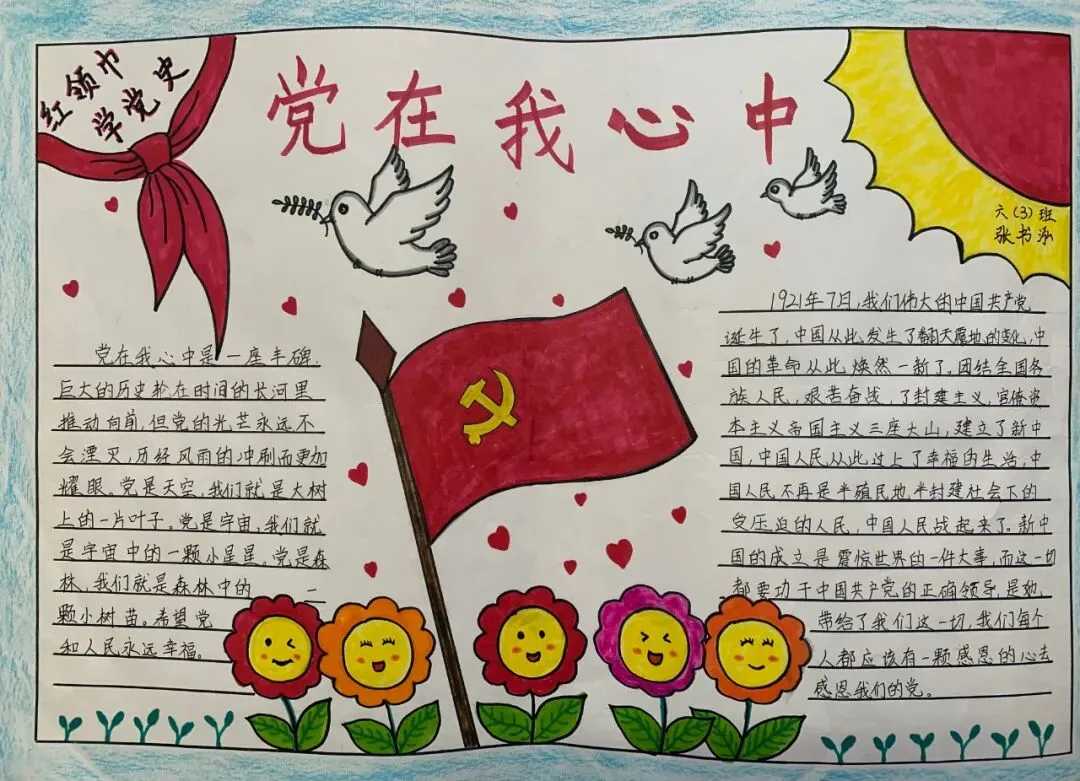 红领巾
学党史
党在我心中
六(3)班
张书泓
党在我心中是一座丰碑
巨大的历史轮在时间的长河里
推动向前,但党的光芒永远不
会湮灭,历经风雨的冲刷而更加
耀眼。党是天空,我们就是大树
上的一片叶子。党是宇宙,我们就
是宇宙中的一颗小星星。党是森
林,我们就是森林中的一
颗小树苗。希望党
和人民永远幸福。
1921年7月,我们伟大的中国共产党
诞生了,中国从此发生了翻天震地的变化,中
国的革命从此焕然一新了。团结全国各
族人民,艰苦奋战,了封建主义,官僚资
本主义帝国主义三座大山,建立了新中
国,中国人民从此过上了幸福的生活,中
国人民不再是半殖民地,半封建社会下的
受压迫的人民,中国人民战起来了。新中
国的成立是震惊世界的一件大事,而这一切
都要功于中国共产党的正确领导,是她
带给了我们这一切,我们每个
人都应该有一颗感恩的心去
感恩我们的党。